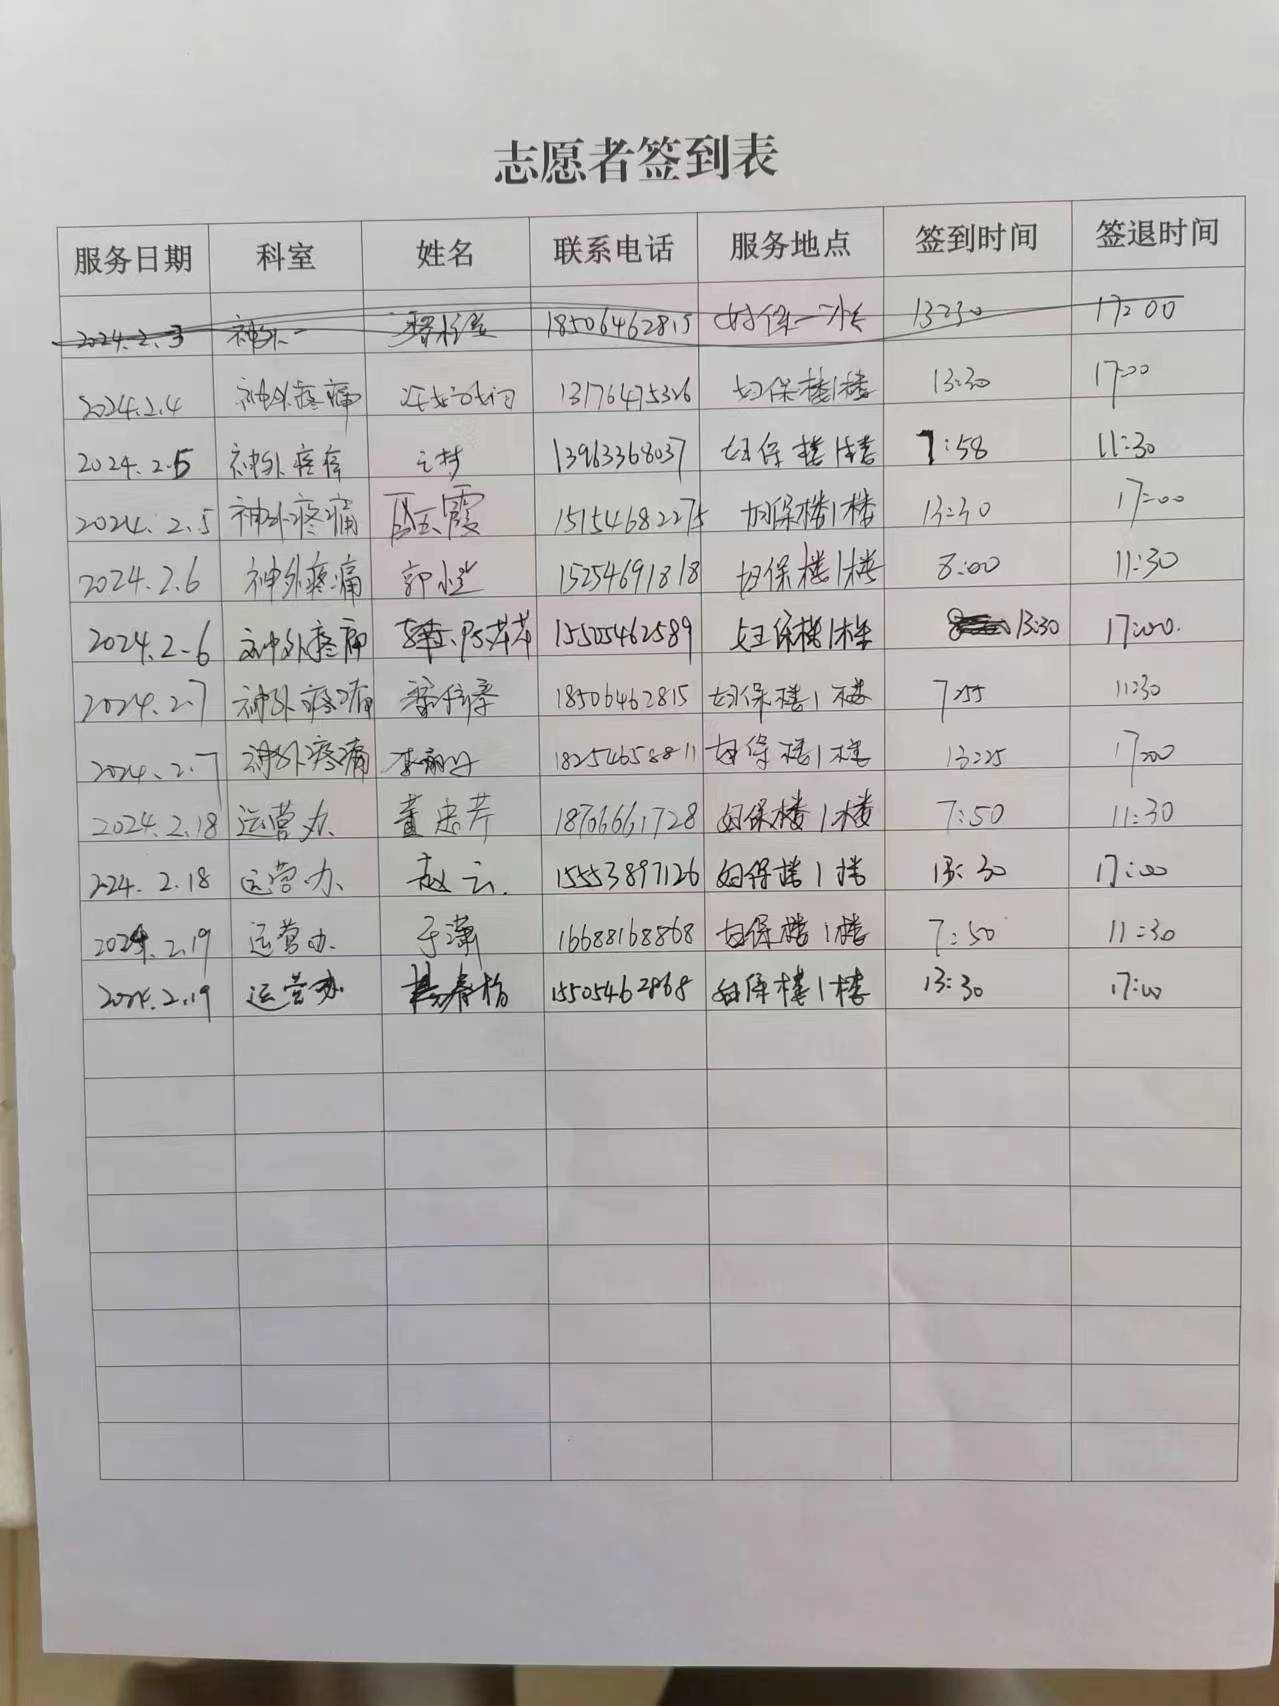 志愿者签到表
服务日期 科室 姓名 联系电话 服务地点 签到时间 签退时间
2024.2.3 神外一 18506462815 妇保一楼 13:30 17:00
2024.2.4 神外疼痛 13176475326 妇保楼1楼 13:30 17:00
2024.2.5 神外疼痛 13963368037 妇保楼1楼 7:58 11:30
2024.2.5 神外疼痛 霞 15154682275 妇保楼1楼 13:30 17:00
2024.2.6 神外疼痛 郭 15254691818 妇保楼1楼 8:00 11:30
2024.2.6 神外疼痛 陈苹苹 15505462589 妇保楼1楼 13:30 17:00.
2024.2.7 神外疼痛 18506462815 妇保楼1楼 7:55 11:30
2024.2.7 神外疼痛 李丽丹 18254658811 妇保楼1楼 13:25 17:00
2024.2.18 运营办 董忠芹 18706661728 妇保楼1楼 7:50 11:30
2024.2.18 运营办 赵云. 15553897126 妇保楼1楼 13:30 17:00
2024.2.19 运营办 于潇 16688168868 妇保楼1楼 7:50 11:30
2024.2.19 运营办 杨春梅 15505462868 妇保楼1楼 13:30 17:00